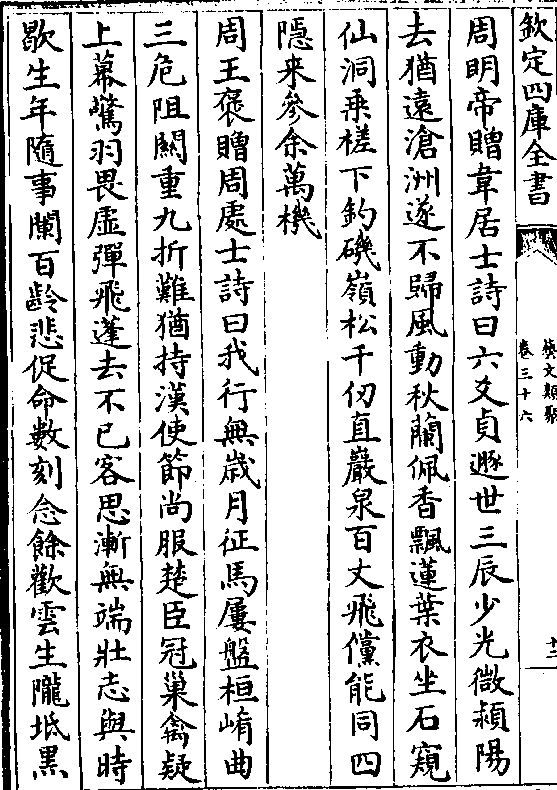 欽定四庫全書
藝文類聚
卷三十六
周明帝贈韋居士詩曰六爻貞遯世三辰少光微潁陽
去猶遠滄洲遂不歸風動秋蘭佩香飄蓮葉衣坐石窺
仙洞乗槎下釣磯嶺松千仞直巖泉百丈飛儻能同四
隠来參余萬機
周王褒贈周處士詩曰我行無歳月征馬屢盤桓崤曲
三危阻關重九折難猶持漢使節尚服楚臣冠巢禽疑
上幕驚羽畏虛彈飛蓬去不已客思漸無端壯志與時
歇生年隨事闌百齡悲促命數刻念餘歡雲生隴坻黒